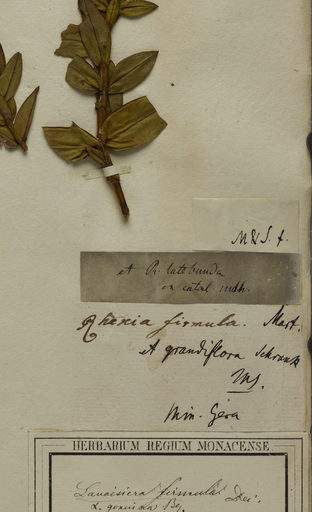 M & S. f.
et R. latebunda
in catal. msh.
Rhexia firmula. Mart.
et grandiflora Schrank
Ms.
Min. Gera
HERBARIUM REGIUM MONACENSE.
Lavoisiera firmula Dec:
L.